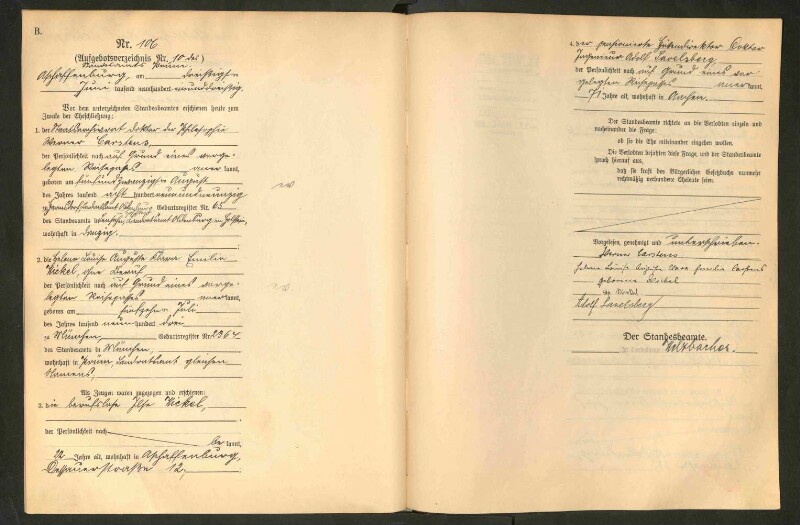 B.
Nr. 106
(Aufgebotsverzeichnis Nr. 10 des)
Standesamts Prüm
Aschaffenburg, am dreißigsten
Juni tausend neunhundert neununddreißig.
Vor dem unterzeichneten Standesbeamten erschienen heute zum
Zwecke der Eheschließung:
1. der Staatsarchivrat Doktor der Philosophie
Werner Carstens,
der Persönlichkeit nach auf Grund eines vorge-
legten Reisepasses anerkannt,
geboren am fünfundzwanzigsten August
des Jahres tausend acht hundert neunundneunzig
Geburtsregister Nr. 65
des Standesamts in Landesamt Oldenburg in Holstein,
wohnhaft in Danzig.
2. die Helene Louise Auguste Klara Emilie
Nickel, ohne Beruf
der Persönlichkeit nach auf Grund eines vorge-
legten Reisepasses anerkannt,
geboren am fünfzehnten Juli
des Jahres tausend neun hundert drei
in München, Geburtsregister Nr. 2364
des Standesamts in München,
wohnhaft in Prüm Landesamt gleichen
Namens,
Als Zeugen waren zugezogen und erschienen:
3. die berufslose Ilse Nickel,
der Persönlichkeit nach
bekannt,
22 Jahre alt, wohnhaft in Aschaffenburg,
Dessauerstraße 12,
4. der pensionierte Hüttendirektor Doktor
Ingenieur Adolf Savelsberg
der Persönlichkeit nach auf Grund eines vor
gelegten Reisepasses anerkannt,
71 Jahre alt, wohnhaft in Aachen.
Der Standesbeamte richtete an die Verlobten einzeln und
nacheinander die Frage:
ob sie die Ehe miteinander eingehen wollen.
Die Verlobten bejahten diese Frage, und der Standesbeamte
sprach hierauf aus,
daß sie kraft des Bürgerlichen Gesetzbuchs nunmehr
rechtmäßig verbundene Eheleute seien.
Vorgelesen, genehmigt und unterschrieben.
Werner Carstens
Helene Louise Auguste Klara Emilie Carstens
geborene Nickel
Ilse Nickel
Adolf Savelsberg
Der Standesbeamte.
In Vertretung